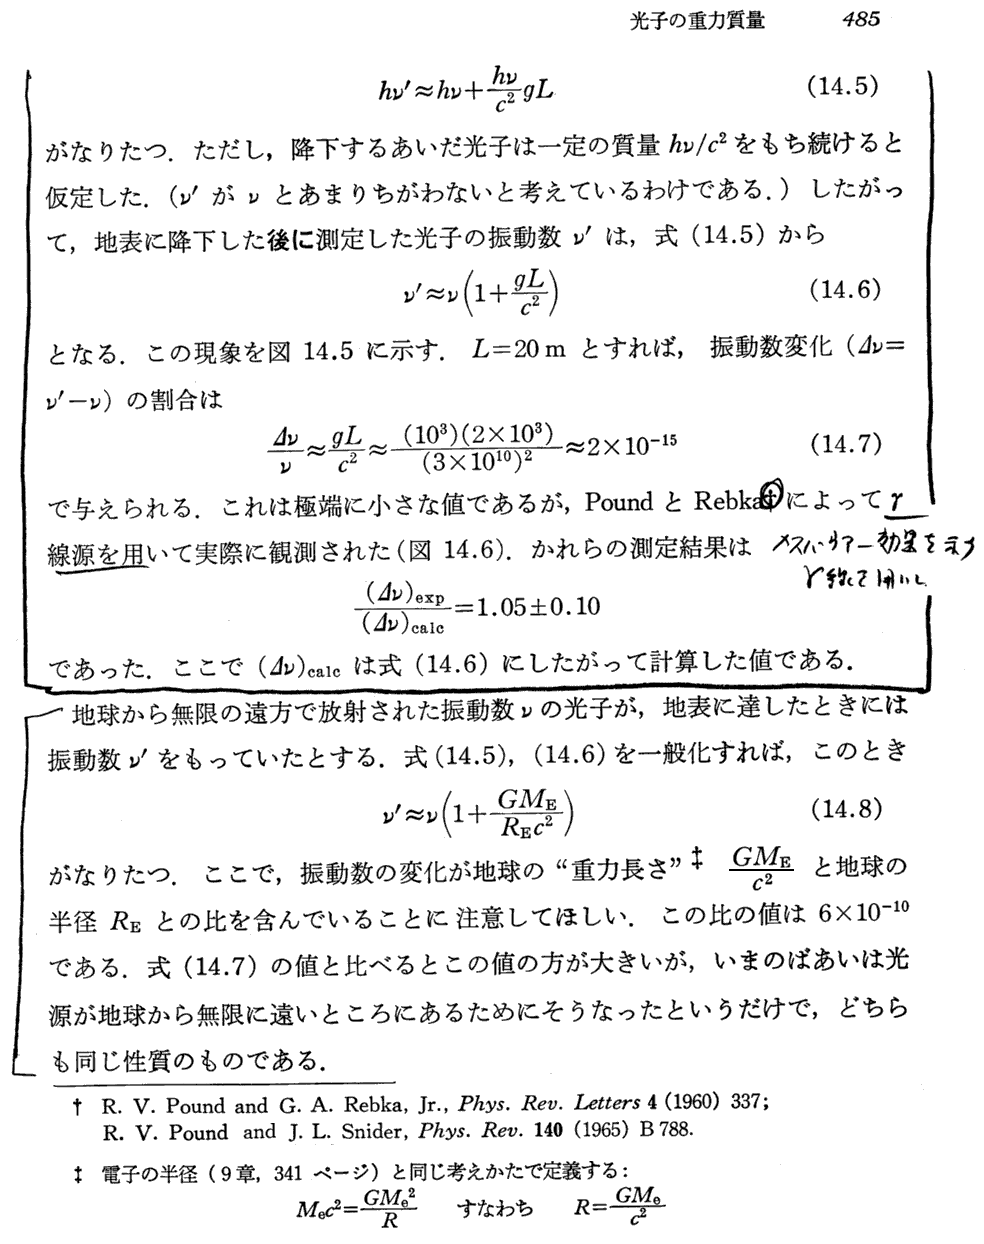 光子の重力質量 485
hν′≈hν+\frac{hν}{c²}gL (14.5)
がなりたつ．ただし，降下するあいだ光子は一定の質量 hν/c² をもち続けると
仮定した．(ν′ が ν とあまりちがわないと考えているわけである．) したがっ
て，地表に降下した後に測定した光子の振動数 ν′ は，式 (14.5) から
ν′≈ν(1+\frac{gL}{c²}) (14.6)
となる．この現象を図 14.5 に示す．L=20 m とすれば，振動数変化 (Δν=
ν′−ν) の割合は
\frac{Δν}{ν}≈\frac{gL}{c²}≈\frac{(10³)(2×10³)}{(3×10¹⁰)²}≈2×10⁻¹⁵ (14.7)
で与えられる．これは極端に小さな値であるが，Pound と Rebka† によって γ
線源を用いて実際に観測された (図 14.6)．かれらの測定結果は
メスバウアー効果を示す
γ線を用いし
\frac{(Δν)_{exp}}{(Δν)_{calc}}=1.05±0.10
であった．ここで (Δν)_{calc} は式 (14.6) にしたがって計算した値である．
地球から無限の遠方で放射された振動数 ν の光子が，地表に達したときには
振動数 ν′ をもっていたとする．式 (14.5)，(14.6) を一般化すれば，このとき
ν′≈ν(1+\frac{GM_E}{R_Ec²}) (14.8)
がなりたつ．ここで，振動数の変化が地球の “重力長さ”‡ \frac{GM_E}{c²} と地球の
半径 R_E との比を含んでいることに注意してほしい．この比の値は 6×10⁻¹⁰
である．式 (14.7) の値と比べるとこの値の方が大きいが，いまのばあいは光
源が地球から無限に遠いところにあるためにそうなったというだけで，どちら
も同じ性質のものである．
† R. V. Pound and G. A. Rebka, Jr., Phys. Rev. Letters 4 (1960) 337;
R. V. Pound and J. L. Snider, Phys. Rev. 140 (1965) B 788.
‡ 電子の半径 (9章，341 ページ) と同じ考えかたで定義する：
M_ec²=\frac{GM_e²}{R} すなわち R=\frac{GM_e}{c²}